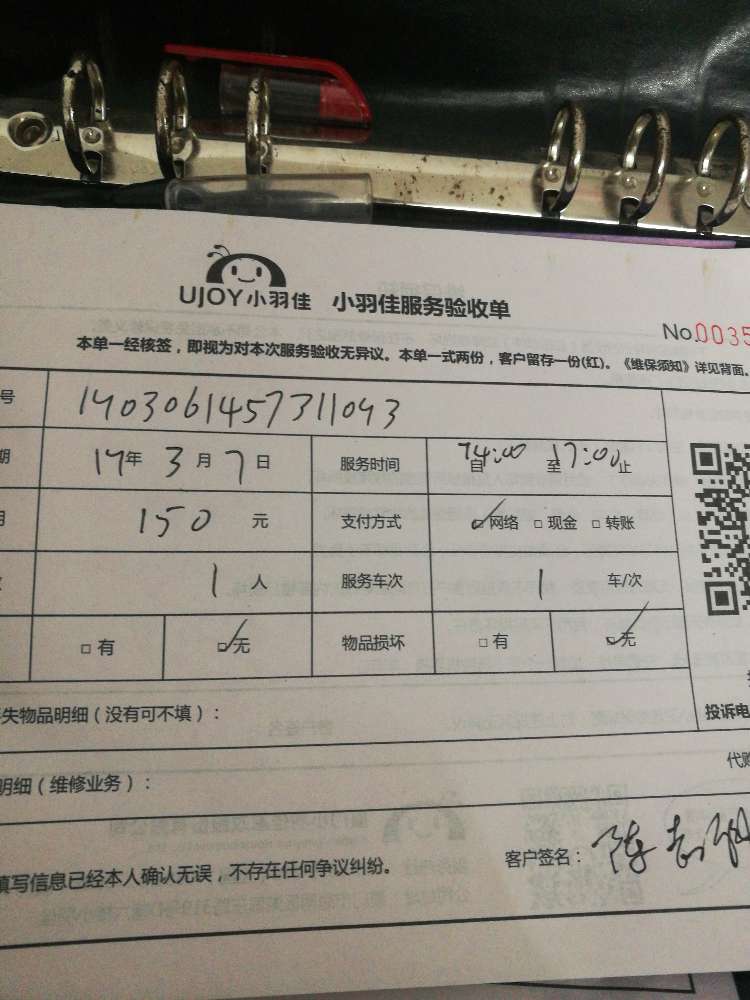 UJOY小羽佳 小羽佳服务验收单
No.0035
本单一经核签，即视为对本次服务验收无异议。本单一式两份，客户留存一份(红)。《维保须知》详见背面。
号 1403061457311093
期 17年 3月 7日 服务时间 自14:00 至17:00止
150 元 支付方式 ☑网络 □现金 □转账
1人 服务车次 1 车/次
□有 ☑无 物品损坏 □有 ☑无
失物品明细（没有可不填）：
投诉电
明细（维修业务）：
代购
填写信息已经本人确认无误，不存在任何争议纠纷。 客户签名：陈志